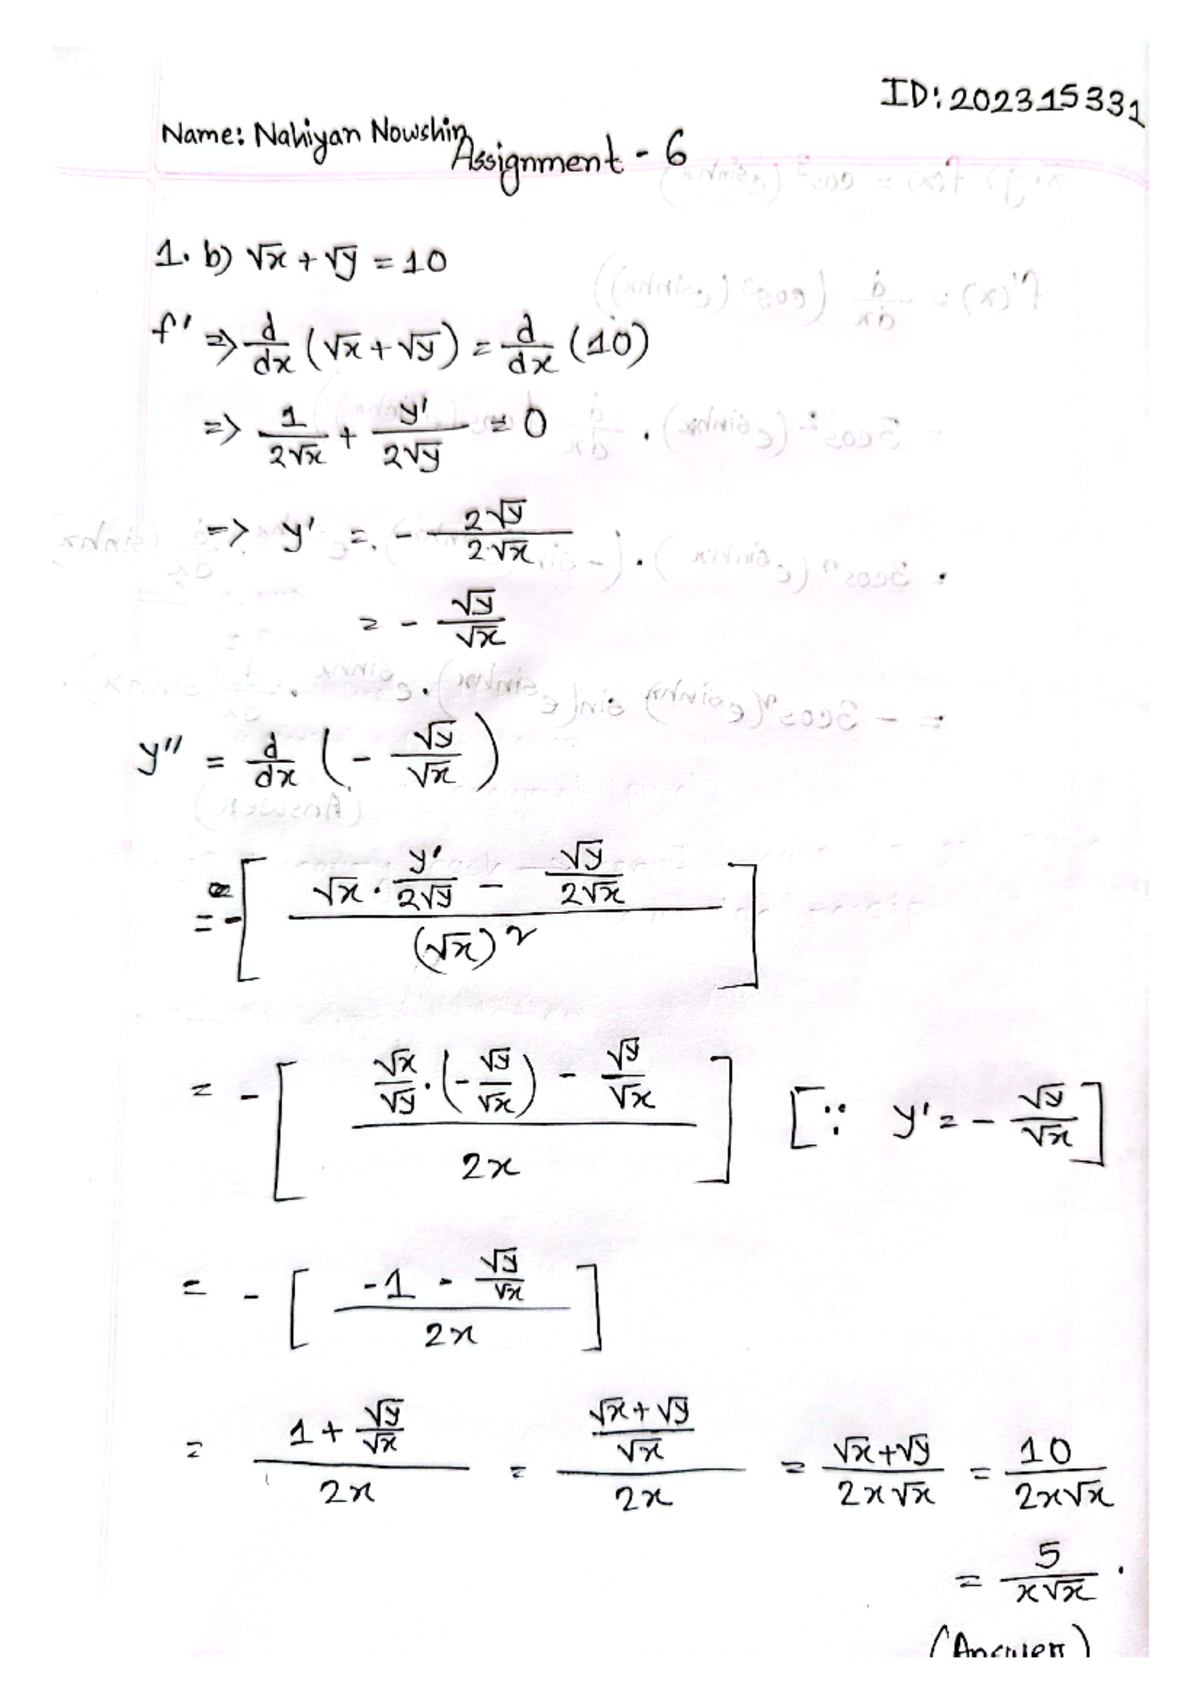 ID: 202315331
Name: Nahiyan Nowshin
Assignment - 6
1. b) √x + √y = 10
f' => d/dx (√x + √y) = d/dx (10)
=> 1/(2√x) + y'/(2√y) = 0
=> y' = - 2√y/(2·√x)
= - √y/√x
y'' = d/dx (- √y/√x)
= - [ (√x · y'/(2√y) - √y/(2√x)) / (√x)² ]
= - [ (√x/√y · (- √y/√x) - √y/√x) / 2x ] [∵ y' = - √y/√x]
= - [ (-1 - √y/√x) / 2x ]
= (1 + √y/√x) / 2x = ((√x + √y)/√x) / 2x = (√x + √y)/(2x√x) = 10/(2x√x)
= 5/(x√x) .
(Answer)